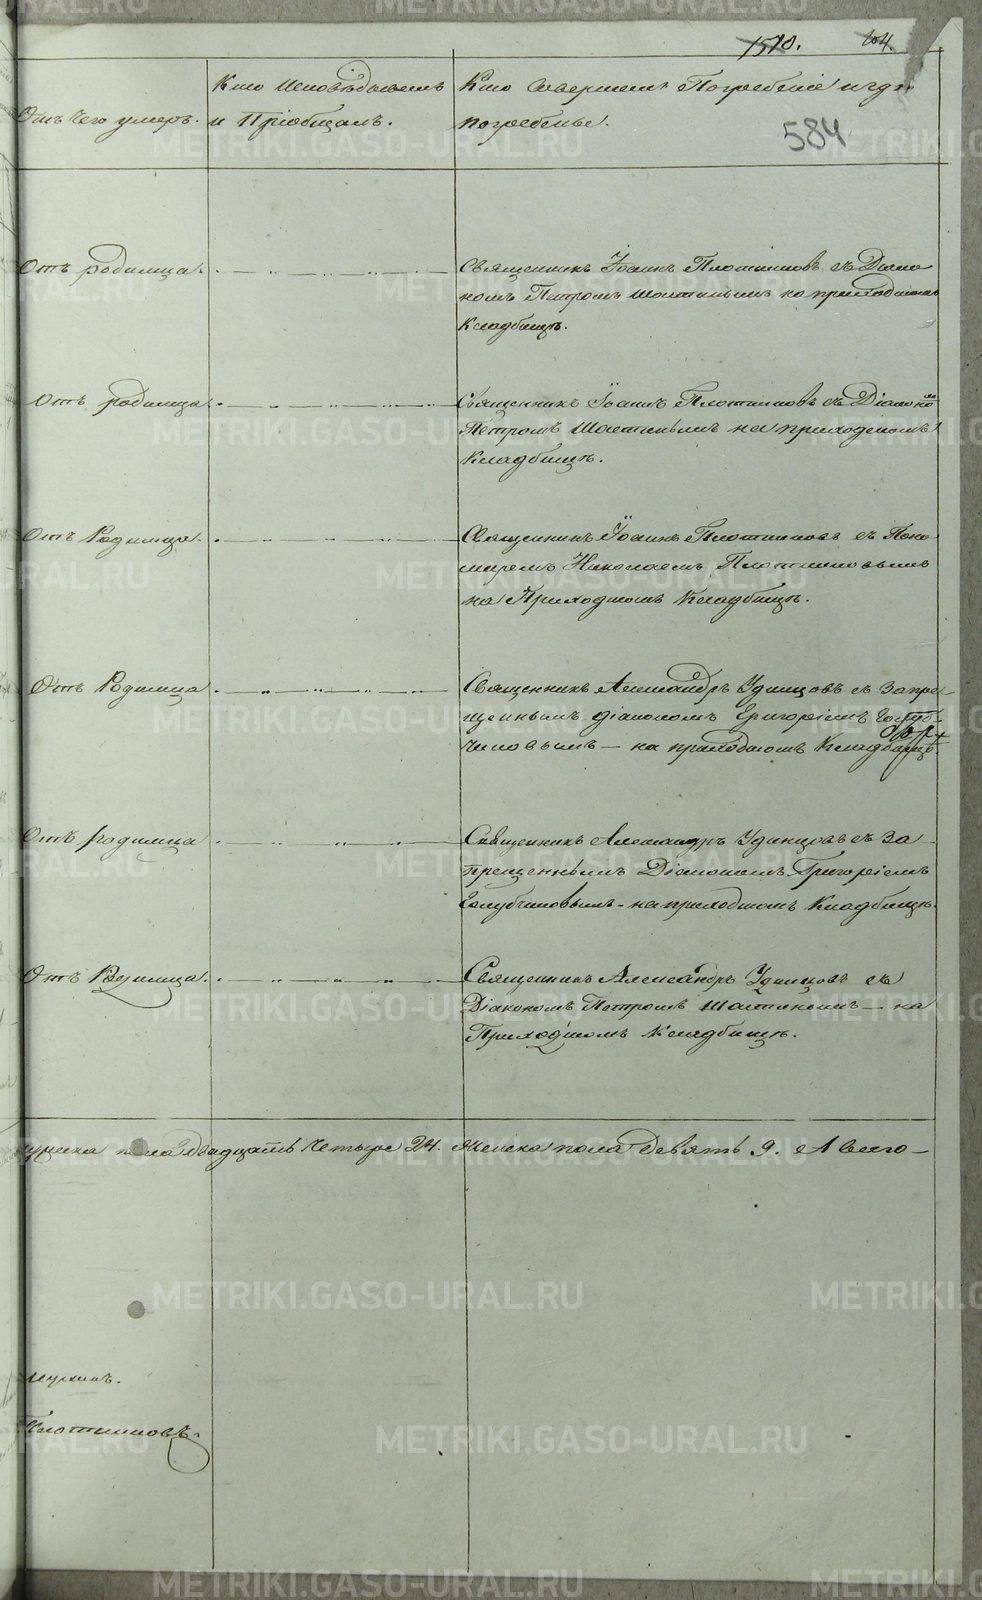 1510. 204.
584
Отъ чего умеръ.
Кто Исповѣдывалъ
и Пріобщалъ.
Кто Совершалъ Погребеніе и гдѣ
погребены.
Отъ родимца.
Священникъ Іоаннъ Плотниковъ съ Діако
номъ Петромъ на приходскомъ
Кладбищѣ.
Отъ родимца.
Священникъ Іоаннъ Плотниковъ съ Діакономъ
Петромъ на приходскомъ
Кладбищѣ.
Отъ Родимца.
Священникъ Іоаннъ Плотниковъ съ Поно
маремъ Николаемъ Плотниковымъ
на Приходскомъ Кладбищѣ.
Отъ Родимца
Священникъ Александръ Удинцовъ съ Запре
щеннымъ діакономъ Григоріемъ Голуб
чиковымъ — на приходскомъ Кладбищѣ.
Отъ родимца
Священникъ Александръ Удинцовъ съ За
прещеннымъ Діакономъ Григоріемъ
Голубчиковымъ - на приходскомъ Кладбищѣ.
Отъ Родимца.
Священникъ Александръ Удинцовъ съ
Діакономъ Петромъ — на
Приходскомъ Кладбищѣ.
мужеска пола двадцать четыре 24. женска пола девять 9. А всего —
Плотниковъ.
METRIKI.GASO-URAL.RU